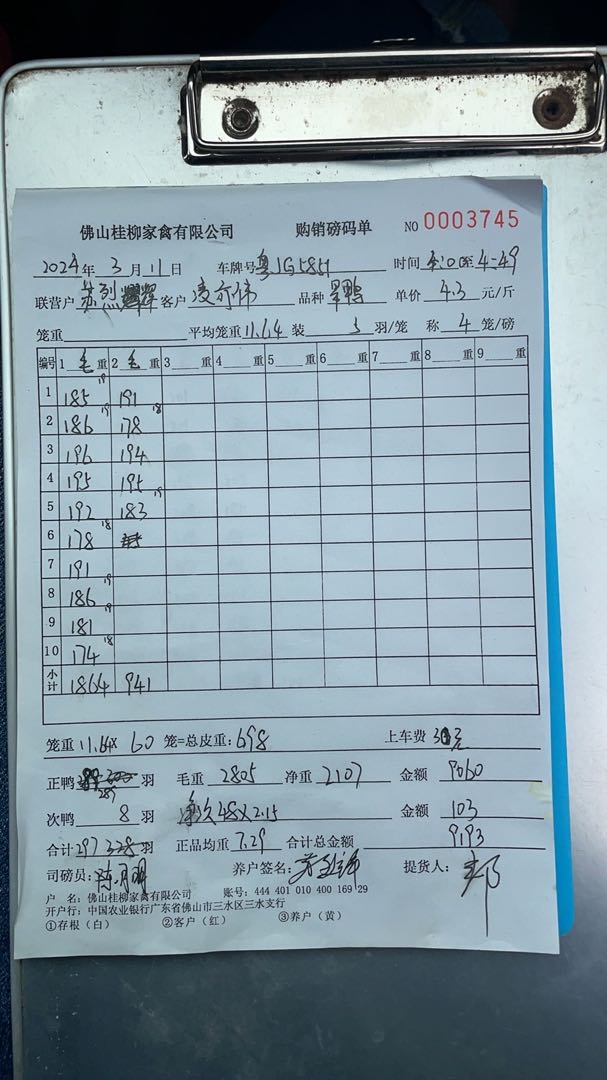 佛山桂柳家禽有限公司 购销磅码单 NO 0003745
2024年 3 月 11 日 车牌号 粤 时间 至 4-49
联营户 苏烈辉 客户 凌 伟 品种 旱鸭 单价 4.3 元/斤
笼重 平均笼重 11.64 装 5 羽/笼 称 4 笼/磅
编号 1 毛 重 2 毛 重 3 重 4 重 5 重 6 重 7 重 8 重 9 重
1 185 19 191
2 186 19 178 18
3 196 194
4 195 195
5 192 183 19
6 178 18
7 191
8 186 19
9 181 19
10 174 18
小计 1864 941
笼重 11.64X 60 笼=总皮重: 698 上车费 元
正鸭 289 羽 毛重 2805 净重 2107 金额 9060
次鸭 8 羽 净次48X2.15 金额 103
合计 297 328 羽 正品均重 7.29 合计总金额 9193
司磅员: 陈月明 养户签名: 提货人: 邦
户 名: 佛山桂柳家禽有限公司 账号: 444 401 010 400 169 29
开户行: 中国农业银行广东省佛山市三水区三水支行
①存根（白） ②客户（红） ③养户（黄）